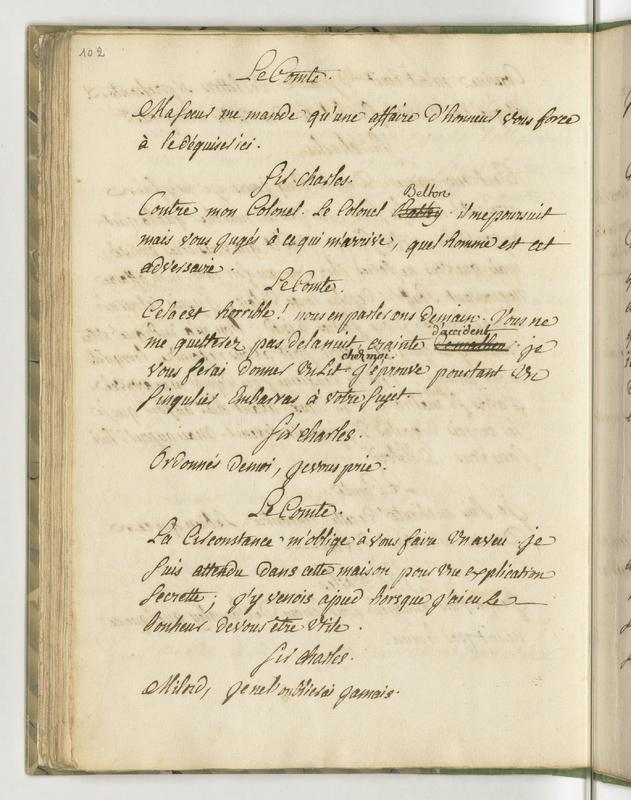 102
Le Comte.
Ma soeur me mande qu'une affaire d'honneur vous force
à le déguiser ici.
Sir Charles.
Belton
Contre mon Colonel. Le Colonel il me poursuit
mais vous jugés à ce qui m'arrive, quel homme est cet
adversaire.
Le Comte.
Cela est horrible! nous en parlerons demain. Vous ne
d'accident
me quitterez pas de la nuit crainte de malheur. je
chez moi.
vous ferai donner un Lit j'éprouve pourtant un
singulier Embarras à votre sujet.
Sir Charles.
Ordonnés de moi, je vous prie.
Le Comte.
La Circonstance m'oblige à vous faire un aveu. je
suis attendu dans cette maison pour une explication
secrette; j'y venois à pied lorsque j'ai eu Le
bonheur de vous être utile.
Sir Charles.
Milord, je ne l'oublierai jamais.